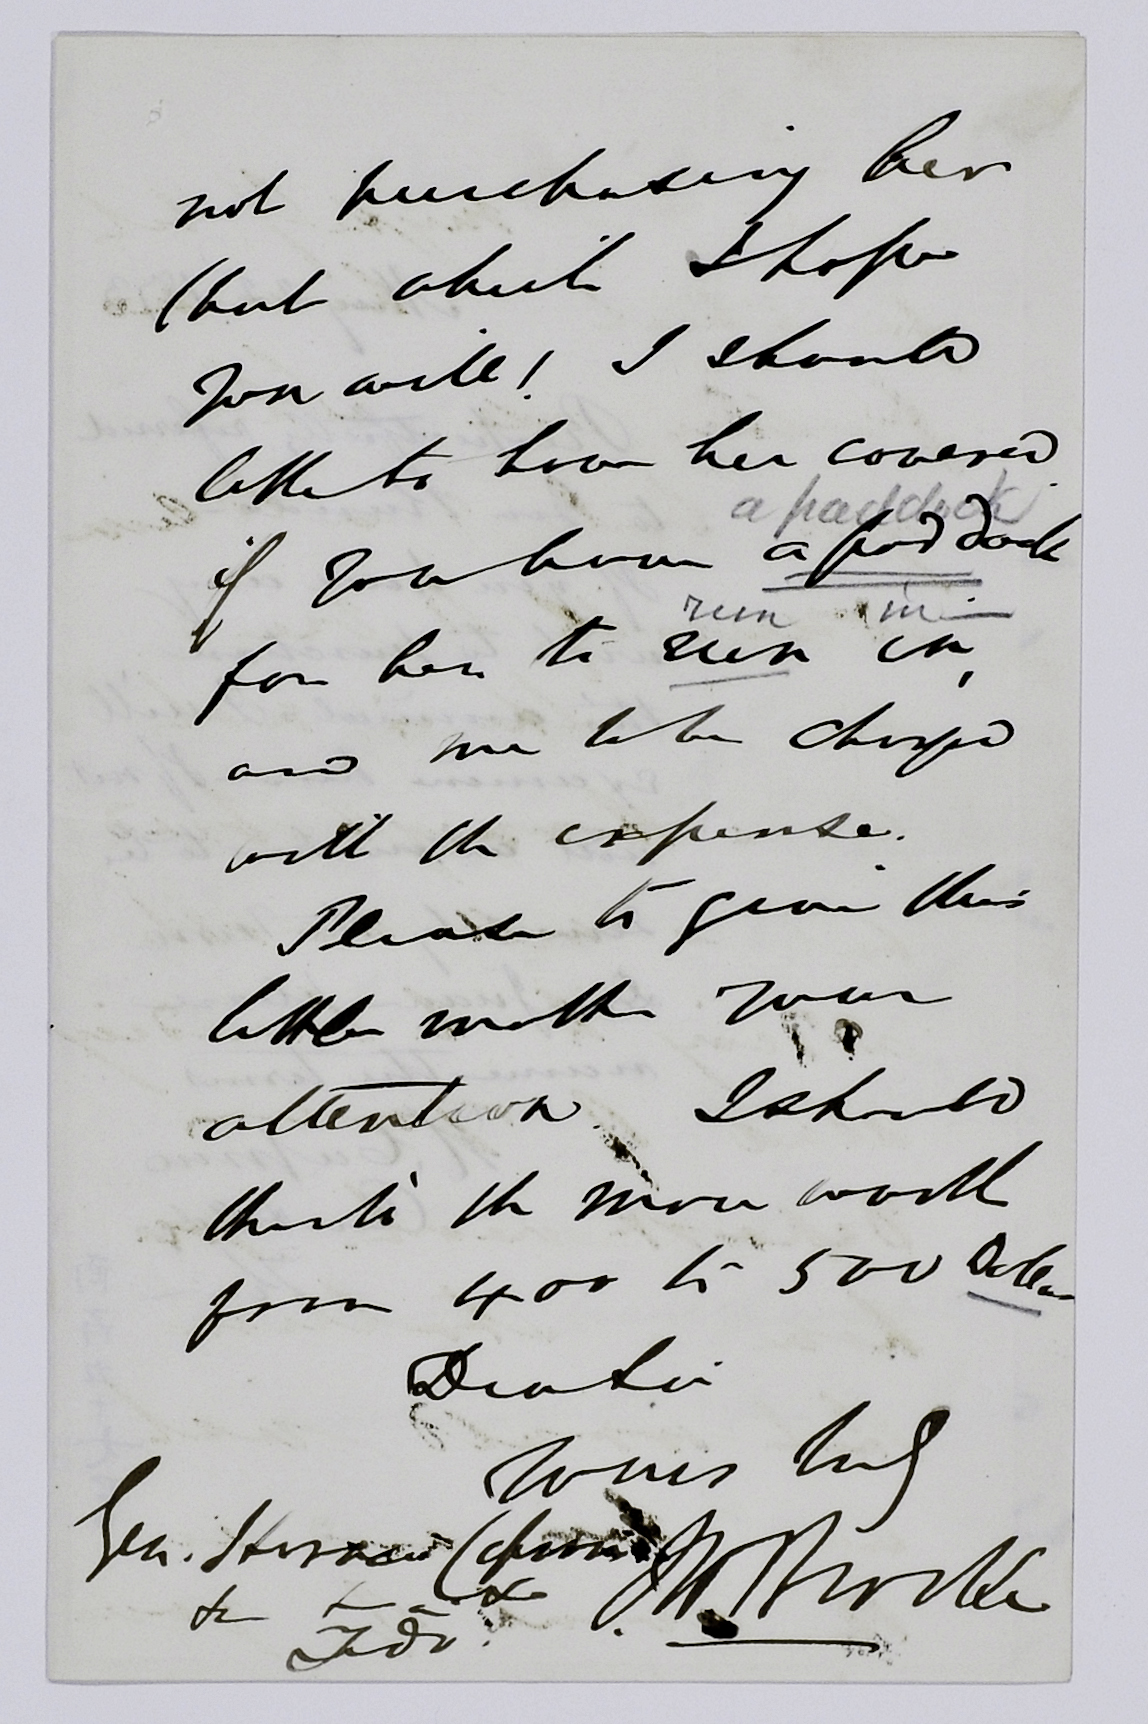 not purchasing her
(but which I hope
you will! I should
like to have her covered
a paddock
if you have a paddock
run in
for her to run in,
and me to be charged
with the expense.
Please to give this
little matter your
attention I should
think the mare worth
from 400 to 500 Dollars
Dear Sir
Yours truly
Gen.
&c &c &c